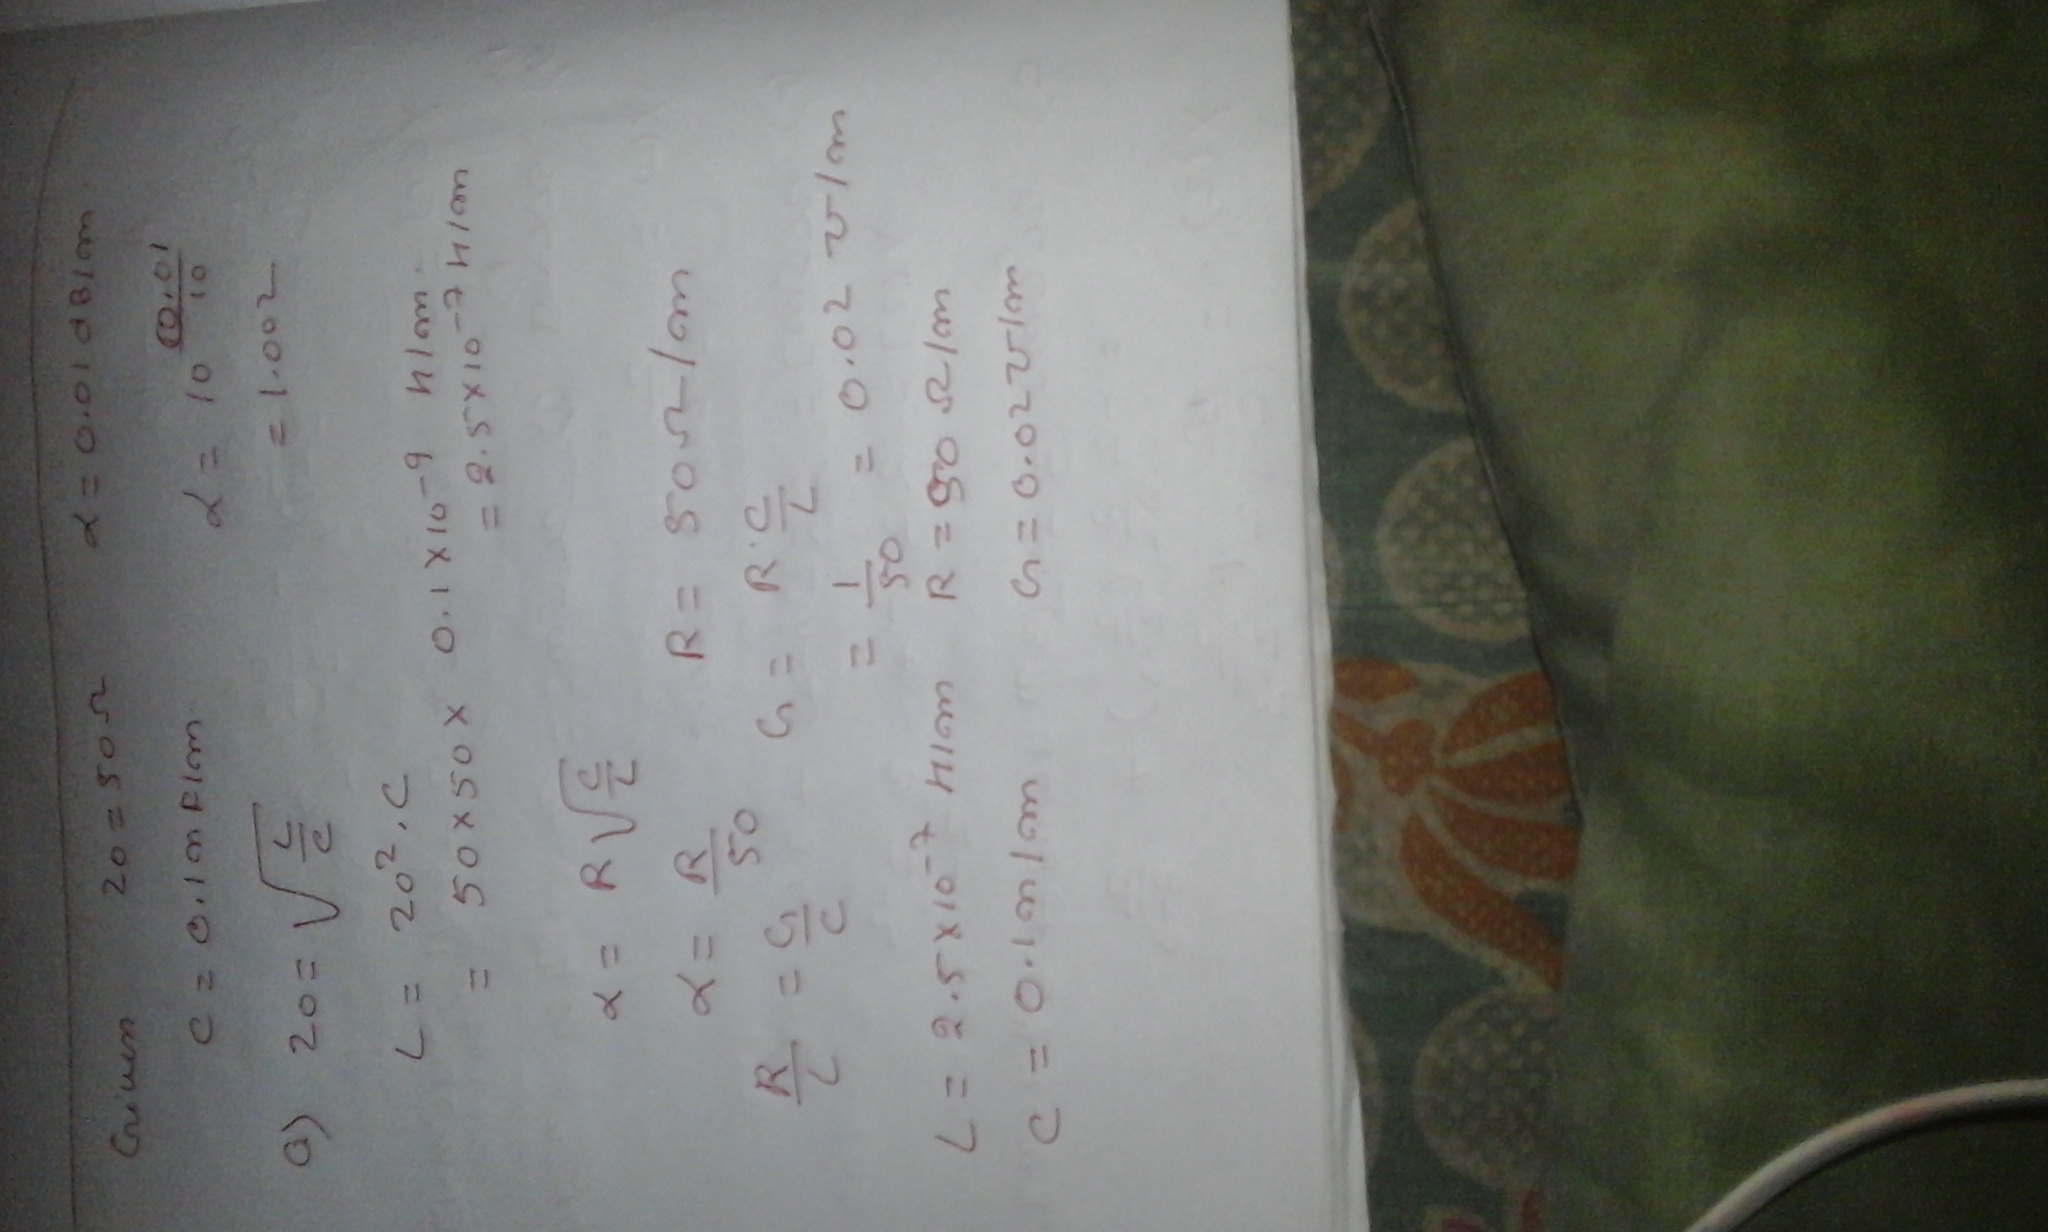 Given Z0 = 50Ω α = 0.01 dB/m
C = 0.1 nF/m α = 10^(0.01/10)
= 1.002
a) Z0 = √(L/C)
L = Z0². C
= 50 × 50 × 0.1 × 10⁻⁹ H/m.
= 2.5 × 10⁻⁷ H/m
α = R √(C/L)
α = R/50 R = 50 Ω/m
R/L = G/C G = R · C/L
= 1/50 = 0.02 ℧/m
L = 2.5 × 10⁻⁷ H/m R = 50 Ω/m
C = 0.1 n/m G = 0.02 ℧/m